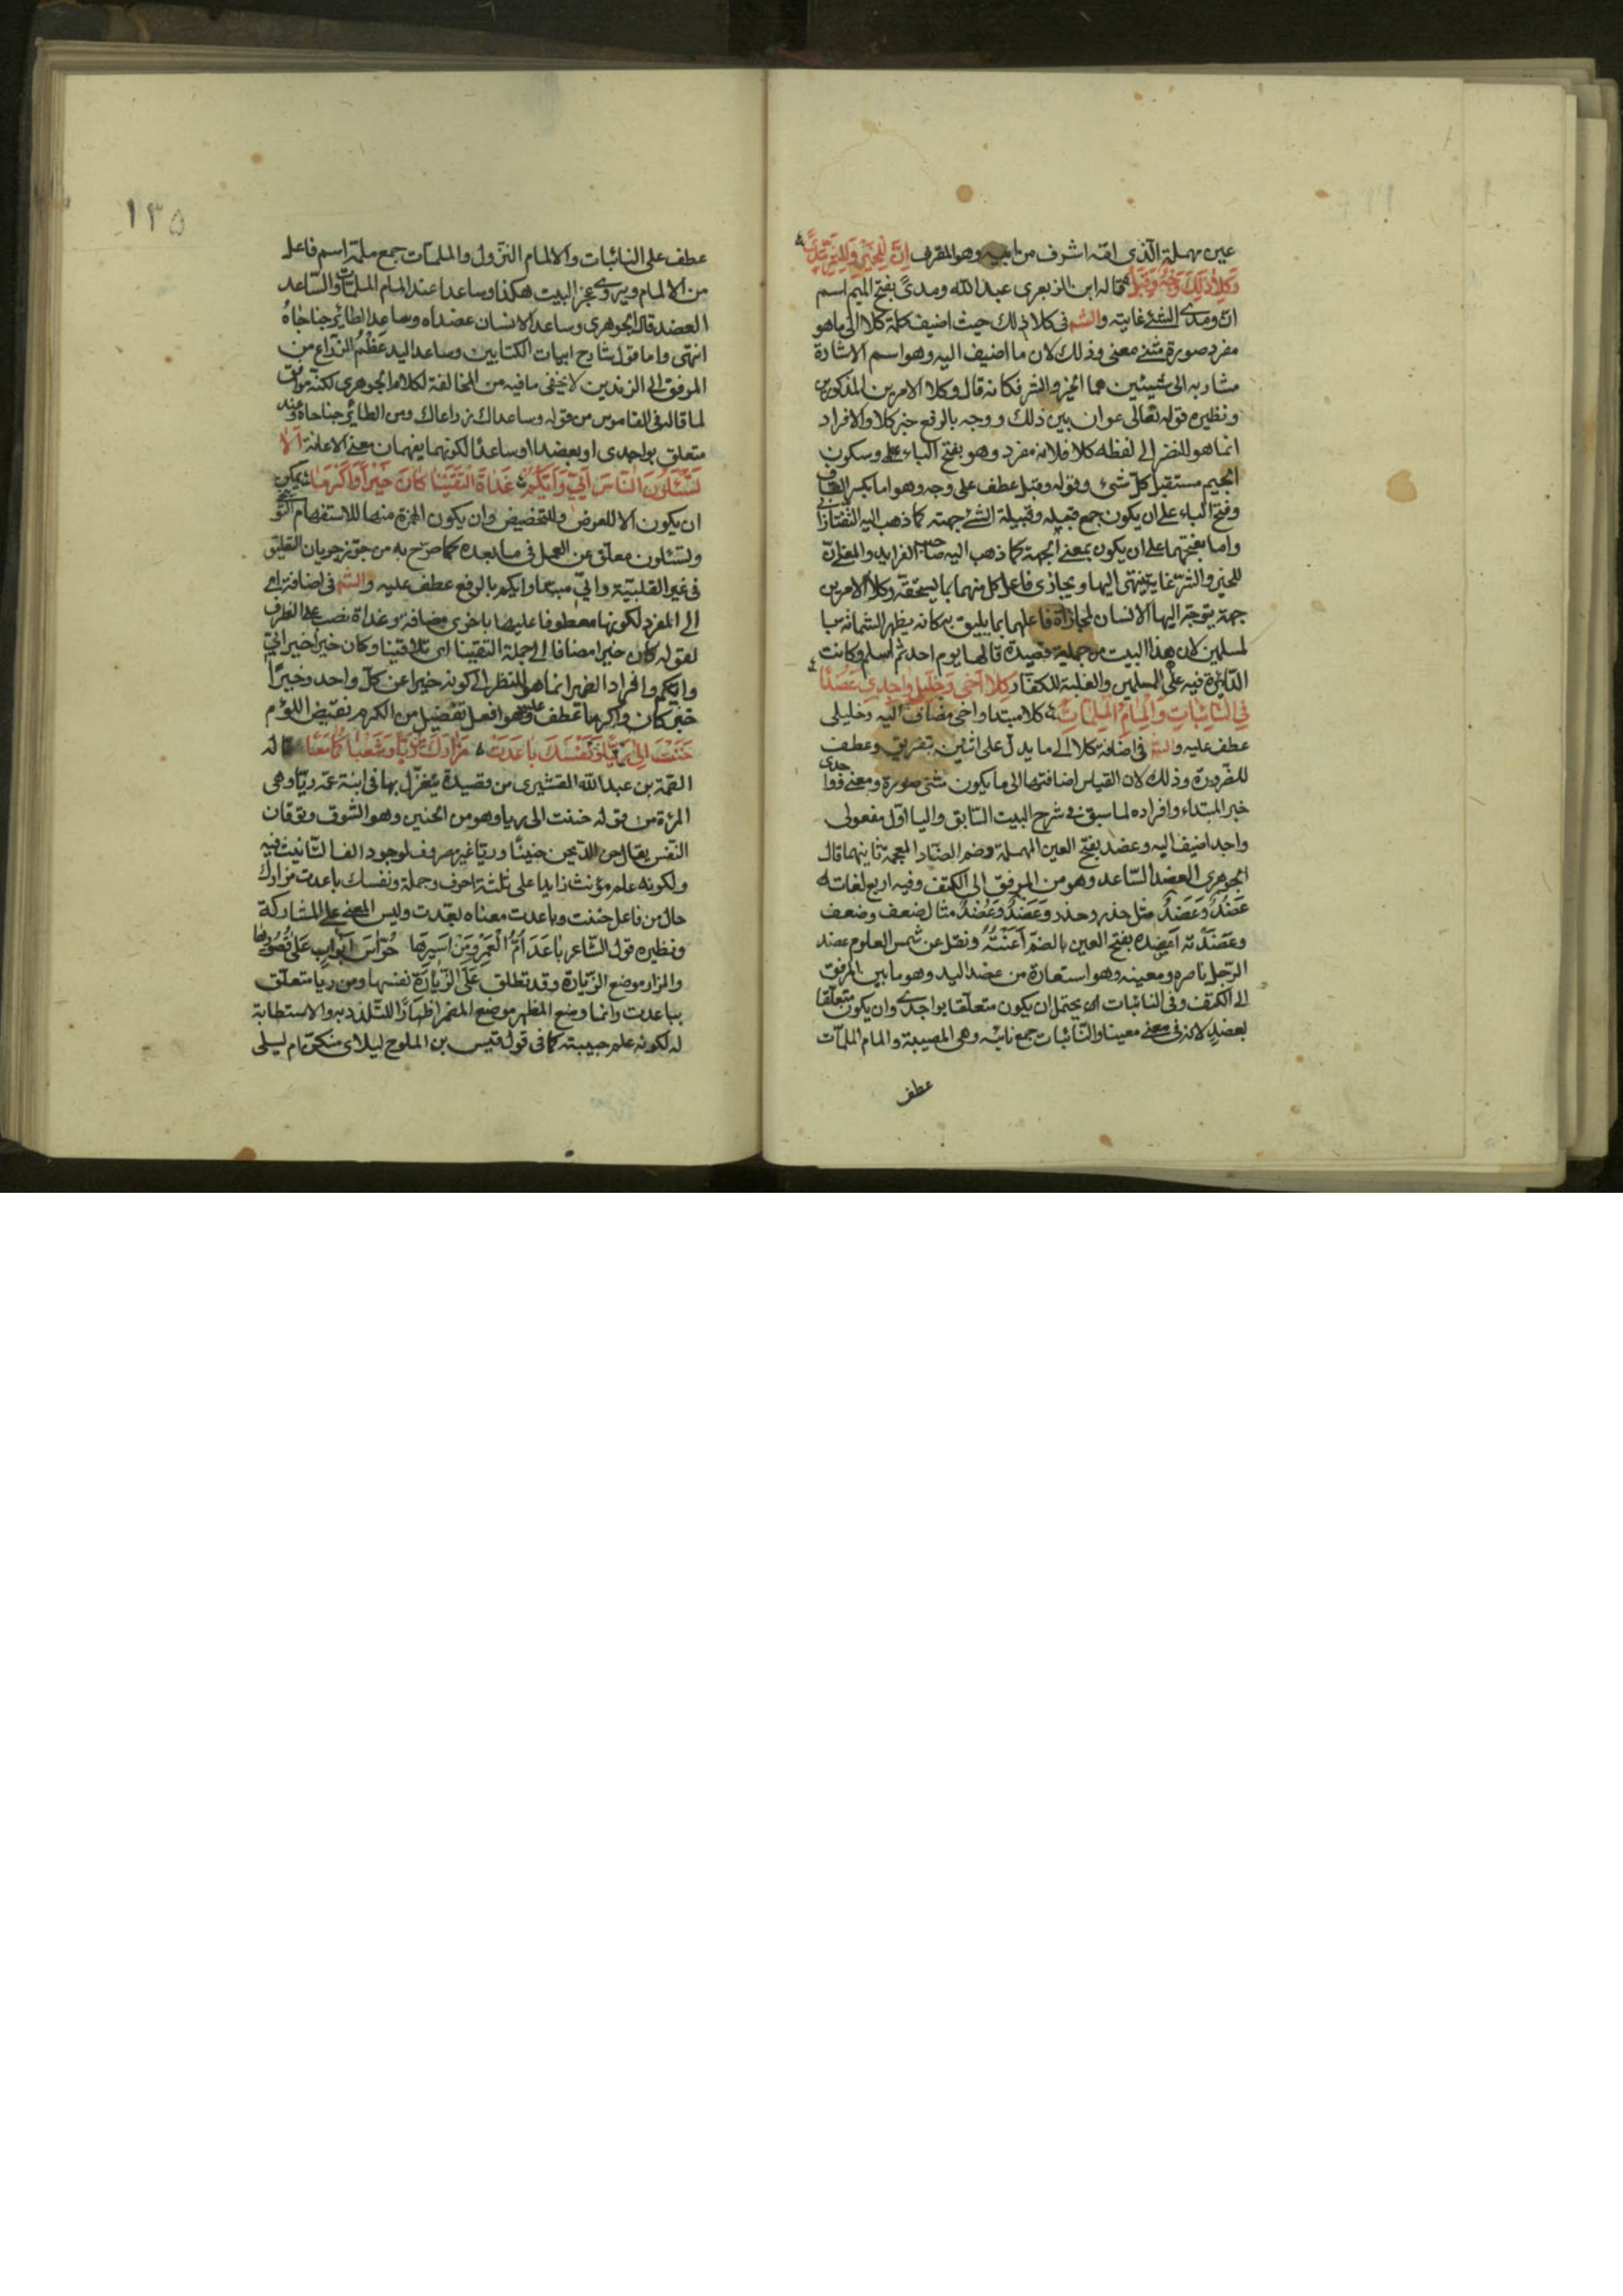 عين مهملة الذي امّه اشرف من ابيه وهو المقرف اِنَّ لِلخَيْرِ وَلِلشَّرِّ مَدًى
وَكِلَا ذٰلِكَ وَجْهٌ وَقَبَلْ قاله ابن الزبعرى عبد الله ومدىً بفتح الميم اسم
انّ ومدى الشئ غايته والشم فى كلا ذلك حيث اضيف كلمة كلا الى ما هو
مفرد صورة مثنى معنى وذلك لان ما اضيف اليه وهو اسم الاشارة
مشار به الى شيئين هما الخير والشر فكانه قال وكلا الامرين المذكورين
ونظيره قوله تعالى عوان بين ذلك ووجه بالرفع خبر كلا والافراد
انما هو للنضر الى لفظه كلا فلانه مفرد وهو بفتح الباء على وسكون
الجيم مستقبل كلّ شئ وقوله وقبل عطف على وجه وهو اما بكسر القاف
وفتح الباء على ان يكون جمع قبيله وقبيلة الشئ جهته كما ذهب اليه التفتازانى
واما بفتحهما على ان يكون بمعنى الجهة كما ذهب اليه صاحب الفرايد والمعنى انّ
للخير والشرّ غاية ينتهى اليها ويجازى فاعل كل منهما بما يستحقه وكلا الامرين
جهة يتوجّه اليها الانسان لمجازاة فاعلهما بما يليق به كانه يظهر الشماته با
لمسلمين لان هذا البيت من جملة قصيدة قالها يوم احد ثم اسلم وكانت
الدّايرة فيه على المسلمين والغلبة للكفّار كِلَا اَخِى وَخَلِيلِى وَاجِدِى عَضُدًا
فِى النَّائِبَاتِ وَاِلْمَامِ الْمُلِمَّاتِ كلا مبتدا واخى مضاف اليه وخليلى
عطف عليه والشم فى اضافة كلا الى ما يدل على اثنين بتفريق وعطف
للضّرورة وذلك لان القياس اضافتها الى ما يكون مثنى صورة ومعنى فواجدى
خبر المبتداء وافراده لما سبق فى شرح البيت السّابق والياء اوّل مفعولى
واجد اضيف اليه وعضد بفتح العين المهملة وضم الضّاد المعجمة ثانيهما قال
الجوهرى العضد السّاعد وهو من المرفق الى الكتف وفيه اربع لغات
عَضُدٌ وَعَضِدٌ مثل حذر وحذر وَعَضْدٌ وَعُضْدٌ مثال ضعف وضعف
وعَضَدْته اَعْضُده بفتح العين بالضمّ اَعَنْتُهُ ونقل عن شمس العلوم عضد
الرّجل ناصره ومعينه وهو استعارة من عضد اليد وهو ما بين المرفق
الى الكتف وفى النائبات يحتمل ان يكون متعلّقا بواجدى وان يكون متعلّقا
بعضدٍ لانه فى معنى معينا والنّائبات جمع نائبه وهى المصيبة والمام الملمّات
عطف
١٣٥
عطف على النائبات والالمام النّزول والملمات جمع ملمّة اسم فاعل
من الالمام ويروى عجز البيت هكذا وساعدا عند المام الملمات والسّاعد
العضد قال الجوهرى وساعد الانسان عضداه وساعد الطائر جناحاهُ
انتهى واما قول شارح ابيات الكتابين وساعد اليد عَظْمُ الذّراع من
المرفق الى الزندين لا يخفى ما فيه من المخالفة لكلام الجوهرى لكنّه موافق
لما قاله فى القاموس من قوله وساعداك زراعاك ومن الطائر جناحاه وعند
متعلق بواجدى او بعضدا او ساعدًا لكونهما يفهمان معنى الاعانة اَلَا
تَسْئَلُونَ النَّاسَ اَيِّى وَاَيُّكُمْ غَدَاةَ الْتَقَيْنَا كَانَ خَيْرًا وَاَكْرَمَا يمكن
ان يكون الا للعرض وللتحضيض وان يكون الهمزة منها للاستفهام التوبيخى
وتسئلون معلّق عن العمل فى ما بعده كما صرّح به من جوّز جريان التعليق
فى غير القلبيّة وايّى مبتدا وايكم بالرفع عطف عليه والشم فى اضافة اى
الى المفرد لكونها معطوفا عليها باخرى مضافة وغداة نصب على الظرف
لقوله كان خيرا مضافا الى جملة التقينا اى تلاقينا وكان خيرا خبر ايّى
وايكم وافراد الضمير انما هو للنظر الى كونه خبرا عن كلّ واحد وخيرًا
خبر كان واكرما عطف عليه وهو افعل تفضيل من الكرم نقيض اللؤم
حَنَنْتَ اِلٰى رَيَّا وَنَفْسُكَ بَاعَدَتْ مَزَارَكَ مِنْ رَيَّا وَشَعْبَا كُمَا مَعًا قاله
الصّمّة بن عبد الله القشيرى من قصيدة يتغزّل بها فى ابنة عمّه ريّا وهى
المرئة من قوله حننت الى ريا وهو من الحنين وهو الشوق وتوقان
النّفس يقال حنّ اليه يحن حنينًا وريّا غير مصروف لوجود الف التّانيث فيه
ولكونه علم مؤنث زايدا على ثلثة احرف وجملة ونفسك باعدت مزارك
حال من فاعل حننت وباعدت معناه بعّدت وليس المعنى على المشاركة
ونظيره قول الشّاعر بَاعَدَ اَمُّ الْعَمْرِو مِنْ اَسِيرِهَا حُرّاسُ اَبْوَابٍ عَلٰى قُصُورِهَا
والمزار موضع الزّيارة وقد تطلق عَلَى الزِّيَارَة نفسها ومن ريّا متعلّق
بباعدت وانما وضع المظهر موضع المضمر اظهارًا للتّلذذ به والاستطابة
له لكونه علم حبيبته كما فى قول قيس بن الملوح ليلاى منكنّ ام ليلى